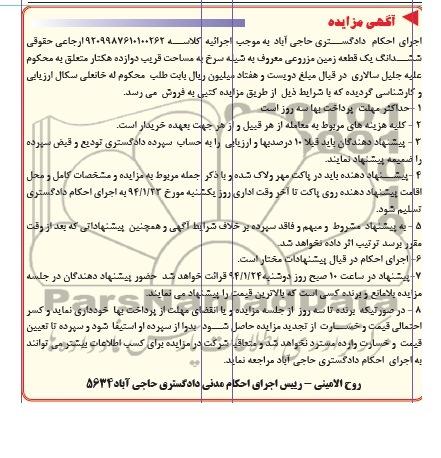 آگهي مزايده
اجرای احکام دادگستری حاجی آباد به موجب اجرائیه کلاسه ۹۲۰۹۹۸۷۶۱۰۱۰۰۲۶۲ ارجاعی حقوقی
ششدانگ یک قطعه زمین مزروعی معروف به شیله سرخ به مساحت قریب دوازده هکتار متعلق به محکوم
علیه جلیل سالاری در قبال مبلغ دویست و هفتاد میلیون ریال بابت طلب محکوم له خانعلی سکال ارزیابی
و کارشناسی گردیده که با شرایط ذیل از طریق مزایده کتبی به فروش می رسد.
۱ –حداکثر مهلت پرداخت بها سه روز است
۲ - کلیه هزینه های مربوط به معامله از هر قبیل و از هر جهت بعهده خریدار است.
۳ - پیشنهاد دهندگان باید قبلا ۱۰درصدبها و ارزیابی را به حساب سپرده دادگستری تودیع و قبض سپرده
را ضمیمه پیشنهاد نمایند.
۴ –پیشنهاد دهنده باید در پاکت مهر ولاک شده و با ذکر جمله مربوط به مزایده و مشخصات کامل و محل
اقامت پیشنهاد دهنده روی پاکت تا آخر وقت اداری روز یکشنبه مورخ ۹۴/۱/۲۳ به اجرای احکام دادگستری
تسلیم شود.
۵ - به پیشنهاد مشروط و مبهم و فاقد سپرده بر خلاف شرایط آگهی و همچنین پیشنهاداتی که بعد از وقت
مقرر برسد ترتیب اثر داده نخواهد شد.
۶– اجرای احکام در قبال پیشنهادات مختار است.
۷–پیشنهاد در ساعت ۱۰ صبح روز دوشنبه ۹۴/۱/۲۴ قرائت خواهد شد حضور پیشنهاد دهندگان در جلسه
مزایده بلامانع و برنده کسی است که بالاترین قیمت را پیشنهاد می نمایند.
۸ – در صورتیکه برنده تا سه روز از جلسه مزایده و یا انقضای مهلت از پرداخت بها خودداری نماید و کسر
احتمالی قیمت و خسارت از تجدید مزایده حاصل شود بدوا از سپرده او استیفا شود و سپرده تا تعیین
قیمت و خسارت وارده مسترد نخواهد شد و متعاقبا شرکت در مزایده برای کسب اطلاعات بیشتر می توانند
به اجرای احکام دادگستری حاجی آباد مراجعه نماید.
روح الامینی – رییس اجرای احکام مدنی دادگستری حاجی آباد۵۶۳۴